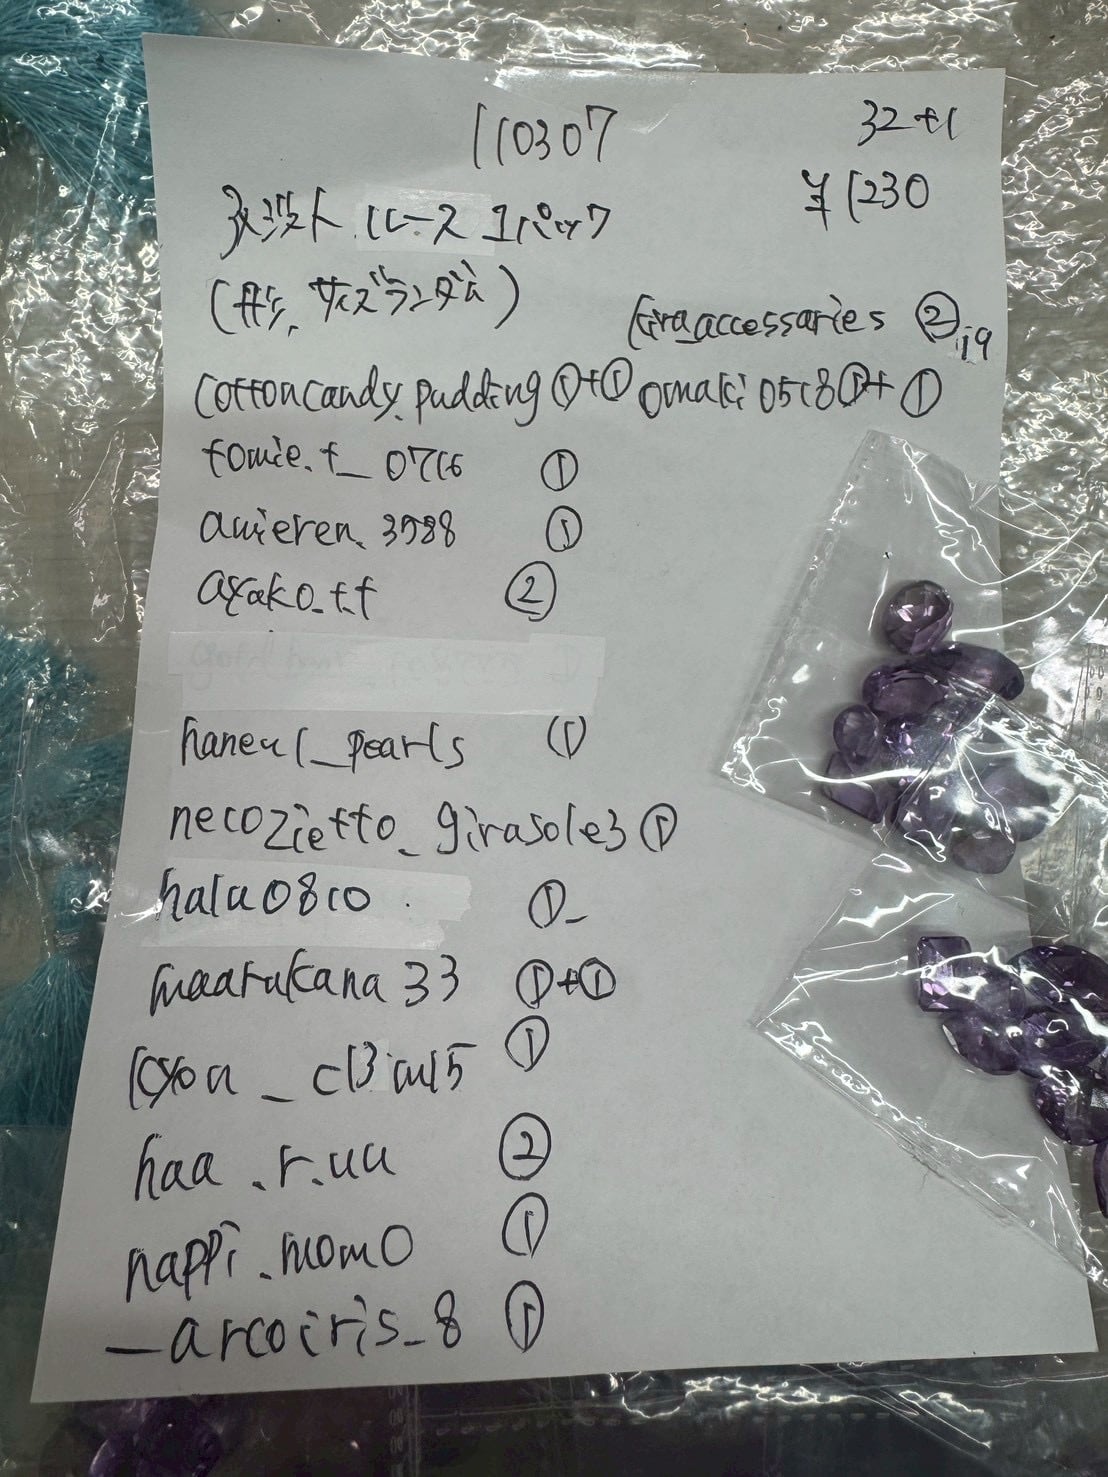 110307
32 +1
¥1230
アメジスト ルース 1パック
(形、サイズランダム)
kira_accessaries ②
cottoncandy.pudding ①+① omaki0518 ①+ ①
tomie.t_0716 ①
auieren.3988 ①
ayako.t.t ②
haneul_pearls ①
necozietto_girasole3 ①
halu0810 ①
maarukana33 ①+①
①
haa.r.uu ②
nappi.momo ①
_arcoiris_8 ①